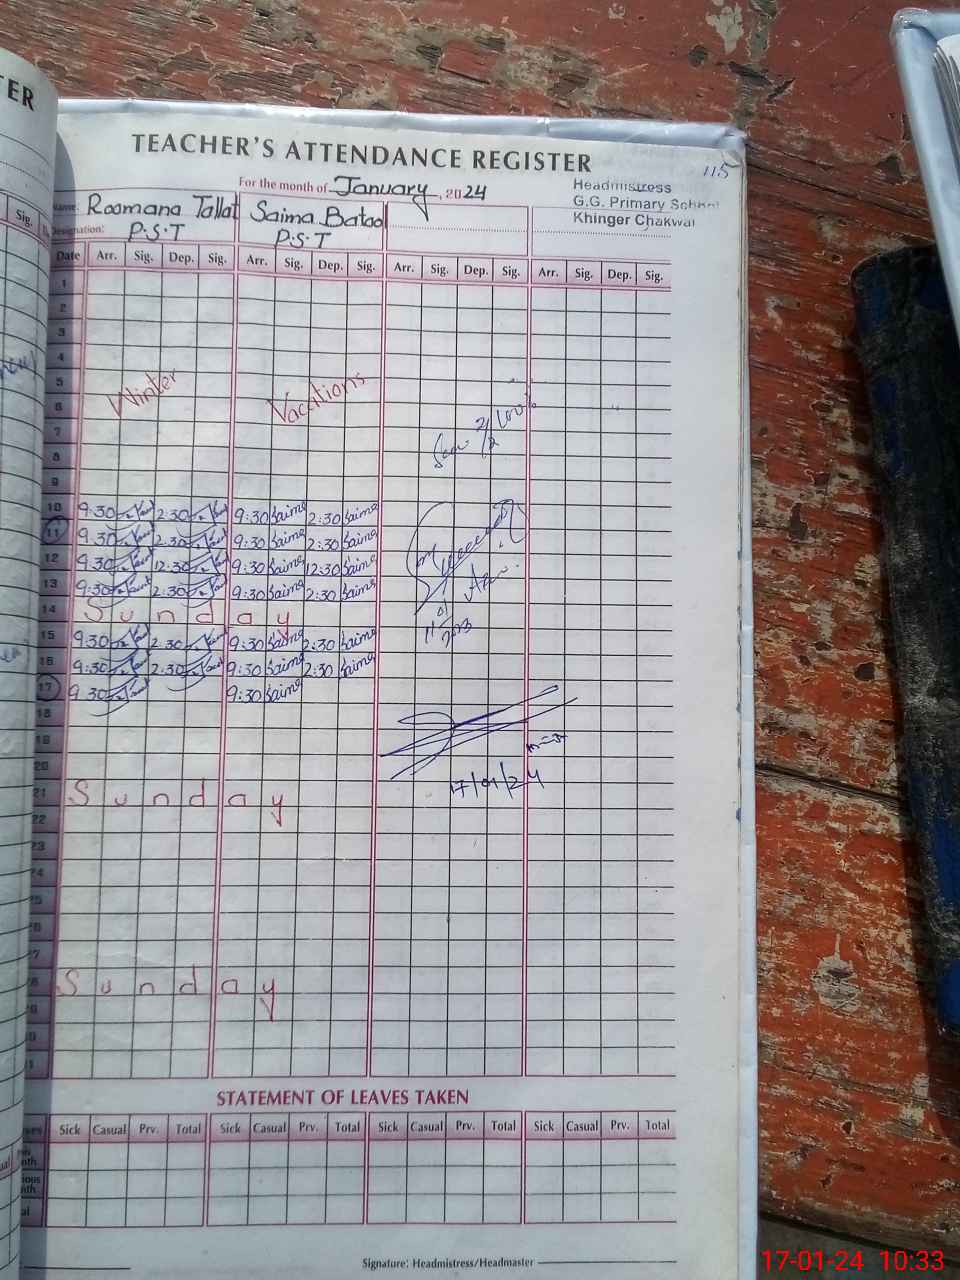 TER
TEACHER'S ATTENDANCE REGISTER
115
For the month of January, 2024
Headmistress
G.G. Primary School
Khinger Chakwal
Name: Roomana Tallat Saima Batool
Designation: P.S.T P.S.T
Sig.
Date Arr. Sig. Dep. Sig. Arr. Sig. Dep. Sig. Arr. Sig. Dep. Sig. Arr. Sig. Dep. Sig.
1
2
3
4
5
Winter Vacations
6
7
8
9
10 9:30 2:30 9:30 Saima 2:30 Saima
11 9:30 2:30 9:30 Saima 2:30 Saima
12 9:30 12:30 9:30 Saima 12:30 Saima
13 9:30 2:30 9:30 Saima 2:30 Saima
14 Sunday
15 9:30 2:30 9:30 Saima 2:30 Saima
16 9:30 2:30 9:30 Saima 2:30 Saima
17 9:30 9:30 Saima
18
19
20
17/01/24
21 Sunday
22
23
24
25
26
27
28 Sunday
29
30
31
STATEMENT OF LEAVES TAKEN
Sick Casual Prv. Total Sick Casual Prv. Total Sick Casual Prv. Total Sick Casual Prv. Total
Signature: Headmistress/Headmaster
17-01-24 10:33